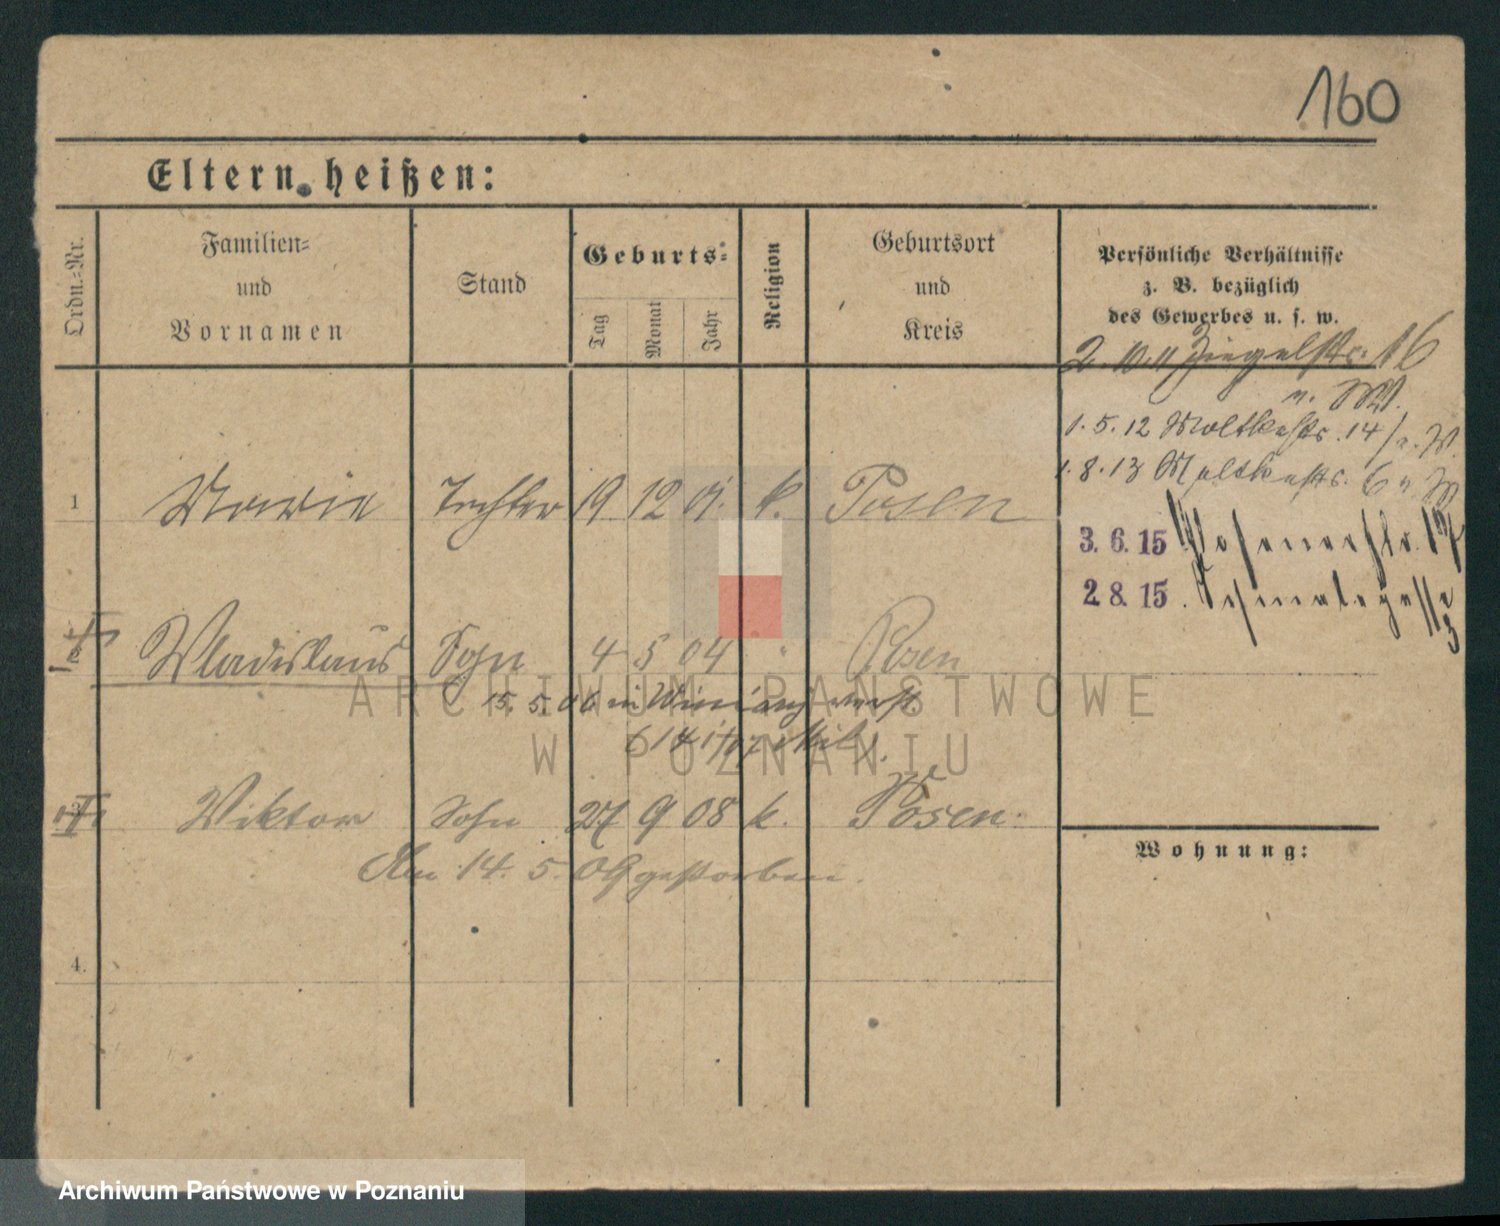 160
Eltern heißen:
Ordn.-Nr.
Familien-
und
Vornamen
Stand
Geburts-
Tag
Monat
Jahr
Religion
Geburtsort
und
Kreis
Persönliche Verhältnisse
z. B. bezüglich
des Gewerbes u. s. w.
2.10.11 Ziegelstr. 16
n. W.
1.5.12 Moltkestr. 14/a. W.
1.8.13 Moltkestr. 6 n. W
1 Marie Tochter 19 12 01. k. Posen
3. 6. 15 Posenerstr. 17
2. 8. 15.
Wladislaus Sohn 4 5 04 " Posen
15. 5. 06 in
Viktor Sohn 27 9 08 k. Posen.
Am 14. 5. 09 gestorben.
Wohnung:
4.
ARCHIWUM PAŃSTWOWE
W POZNANIU
Archiwum Państwowe w Poznaniu